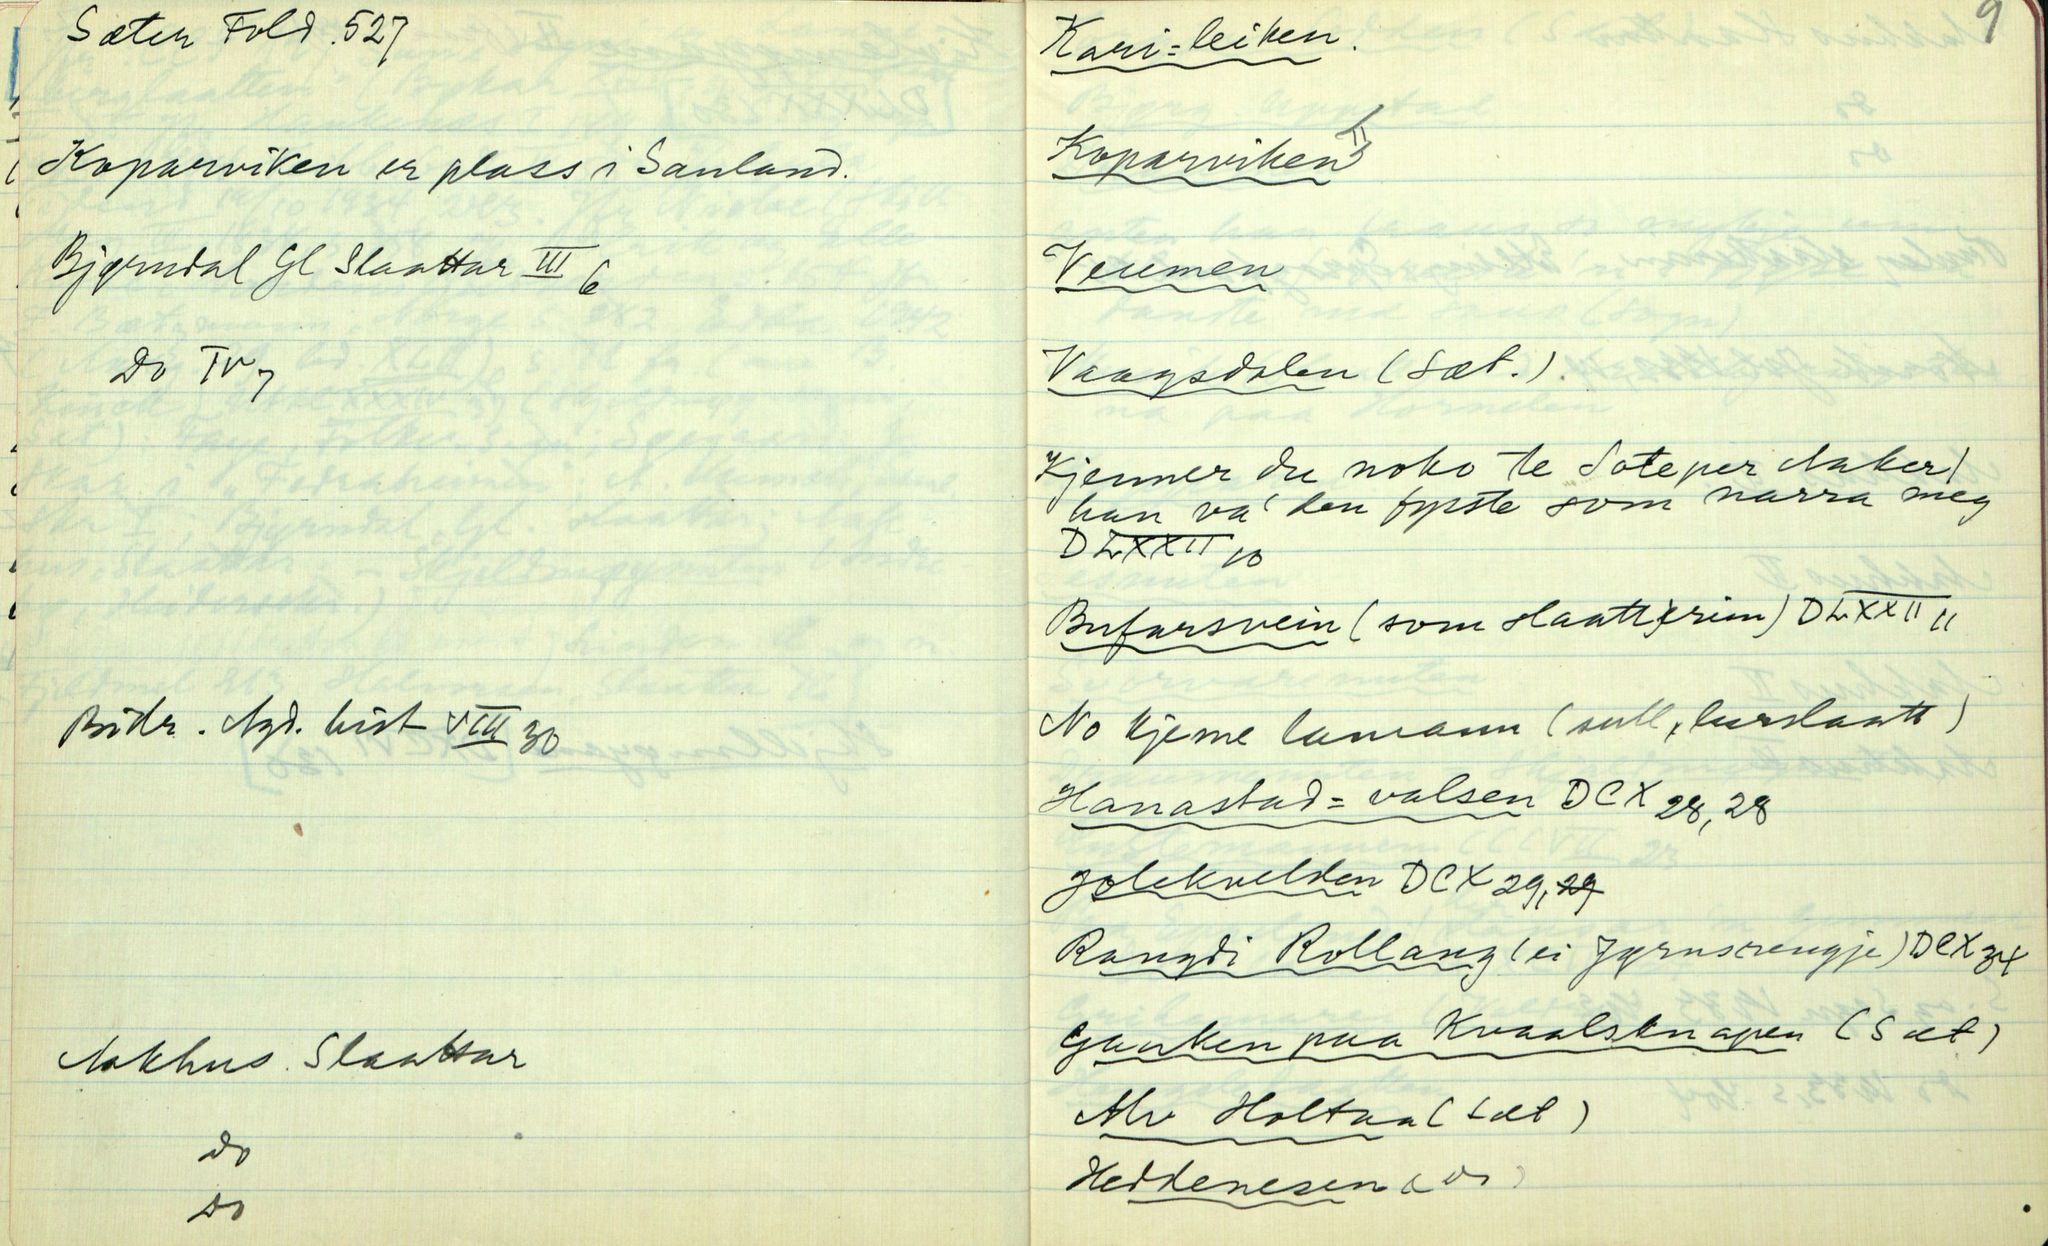 Sæter Fold. 527
Koparviken er plass i Sauland.
Bjørndal Gl Slaattar III 6
Do IV 7
Bidr. Agd. hist VIII 30
Nakhus. Slaattar
do
do
9
Kari-leiken.
Koparviken II
Veumen
Vaagsdalen (Sæt.)
Kjenner du noko te Soteper Aaker/
han va' den fyste som narra meg
DLXXII 10
Bufarsvein (som slaatt, rim) DLXXII 11
No kjeme (sull, lurslaatt)
Hanastad-valsen DCX 28, 28
Jolekvelden DCX 29, 29
Rangdi Rollang (ei Jørnsrengje) DCX 34
Gauken paa Kvaalsknapen (Sæt)
Alv Holtaa (Sæt)
Heddenesen (do)